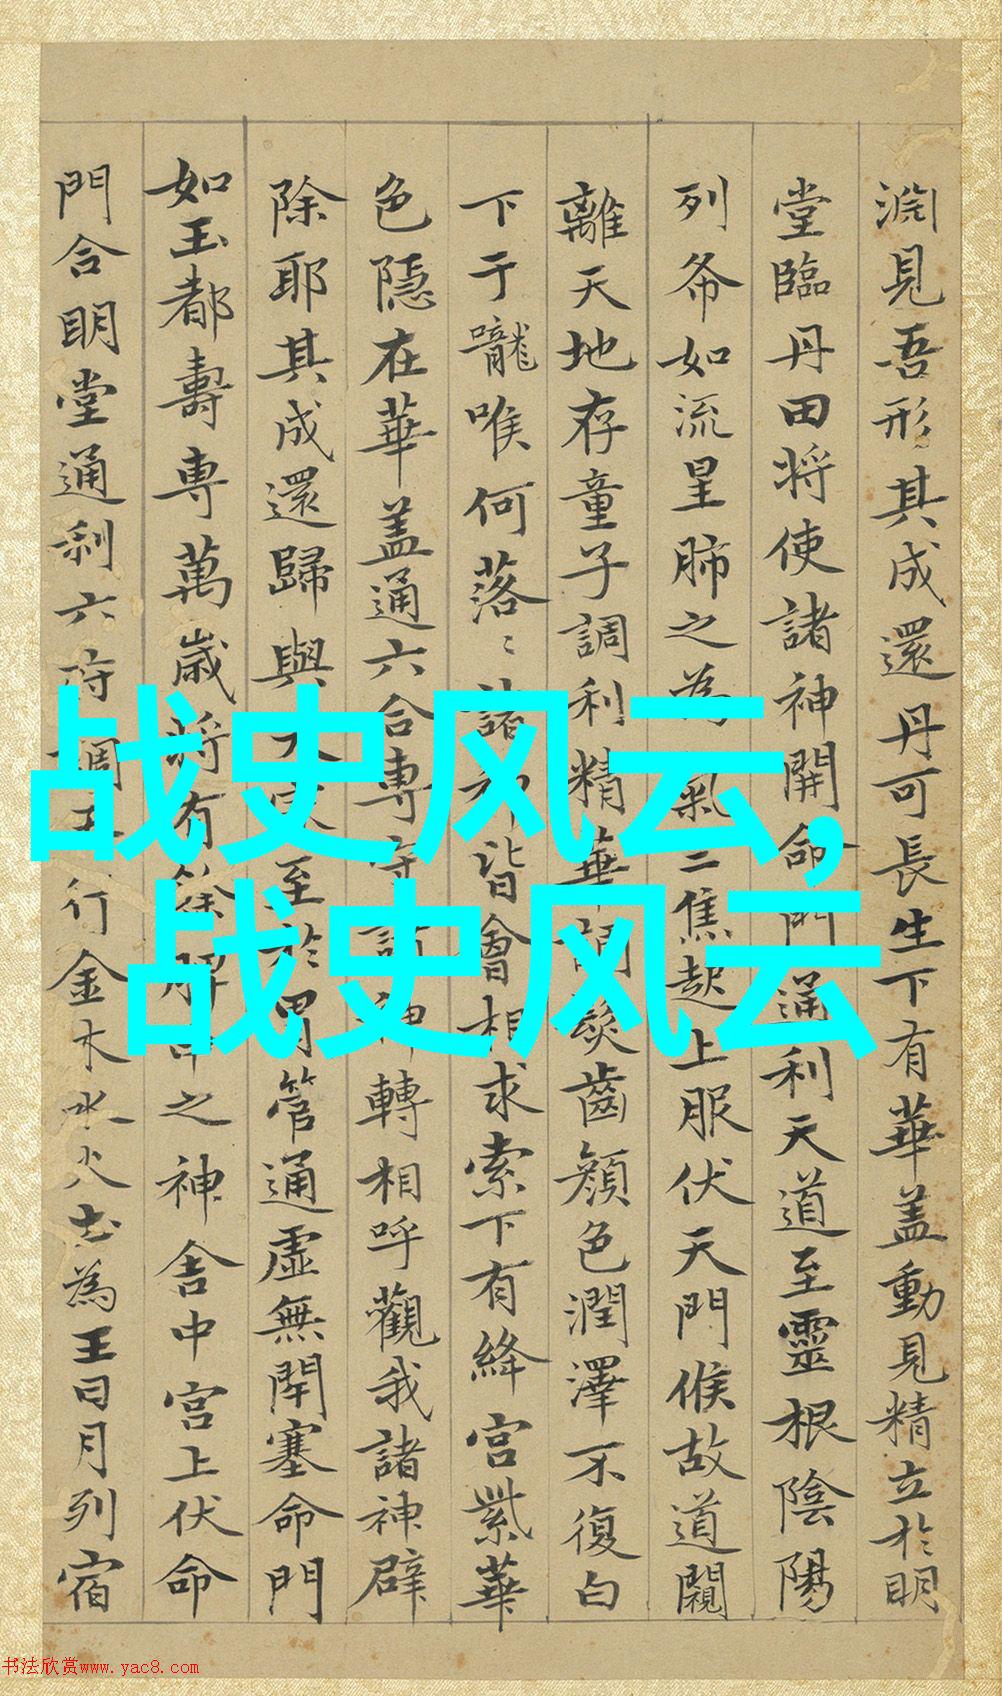 渊見吾形其成還丹可長生下有華盖動見精立於明
堂臨丹田将使諸神開命門通利天道至靈根陰陽
列布如流星肺之為氣三焦起上服伏天門候故道闚
離天地存童子調利精華調髮齒顔色潤澤不復白
下于嚨喉何落〻諸神皆會相求索下有絳宮紫華
色隱在華盖通六合專守諸神轉相呼觀我諸神辟
除耶其成還歸與大家至於胃管通虛無閉塞命門
如玉都壽專萬歲将有餘脾中之神舍中宮上伏命
門合明堂通利六府調五行金木水火土為王日月列宿
战史风云,
战史风云
书法欣赏www.yac8.com